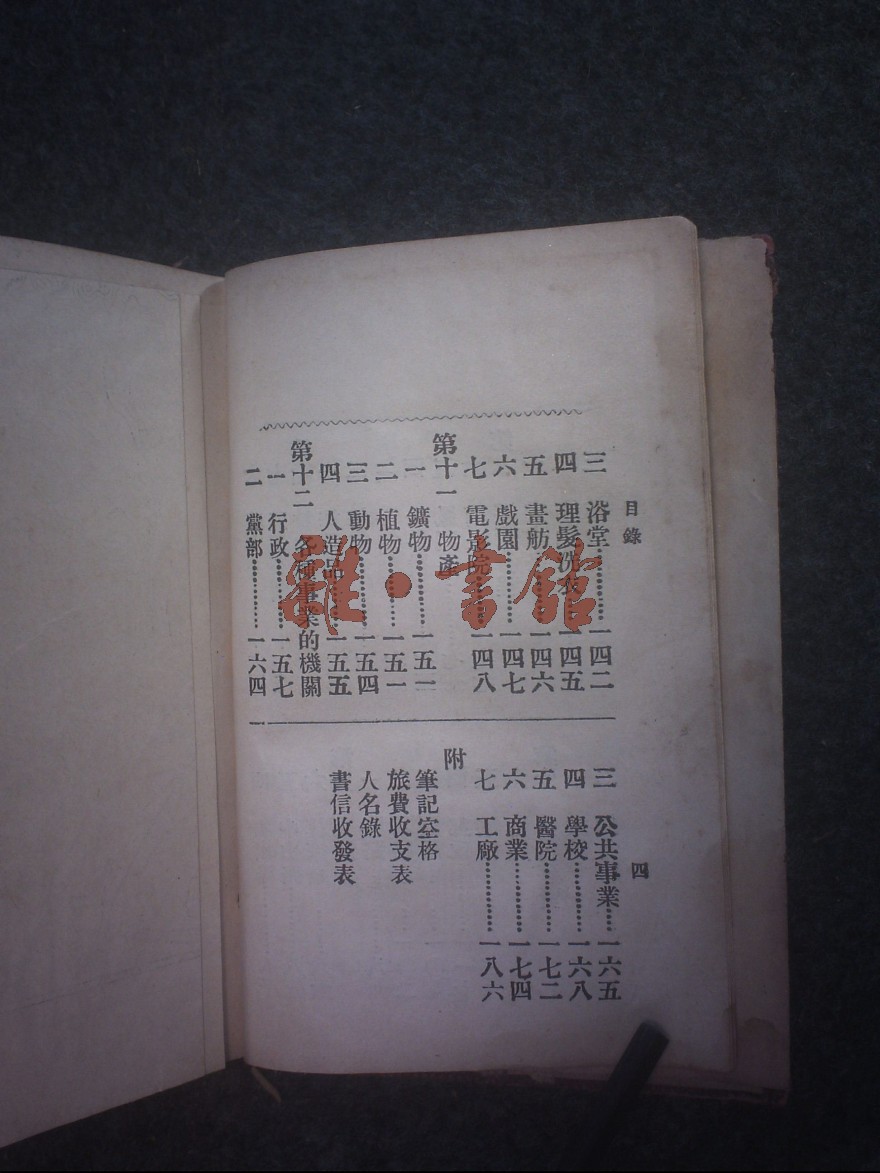 目錄
三 浴堂…………一四二
四 理髮洗衣…一四五
五 畫舫…………一四六
六 戲園…………一四七
七 電影院………一四八
第十一 物產
一 鑛物…………一五一
二 植物…………一五一
三 動物…………一五四
四 人造品………一五五
第十二 各種事業的機關
一 行政…………一五七
二 黨部…………一六四
四
三 公共事業……一六五
四 學校…………一六八
五 醫院…………一七二
六 商業…………一七四
七 工廠…………一八六
附
筆記空格
旅費收支表
人名錄
書信收發表
雜·書館